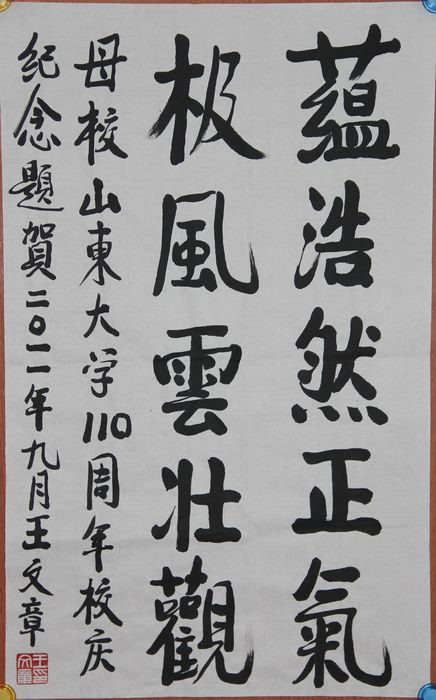 蕴浩然正氣
极風雲壯觀
母校山東大学110周年校庆
纪念題賀二〇一一年九月王文章